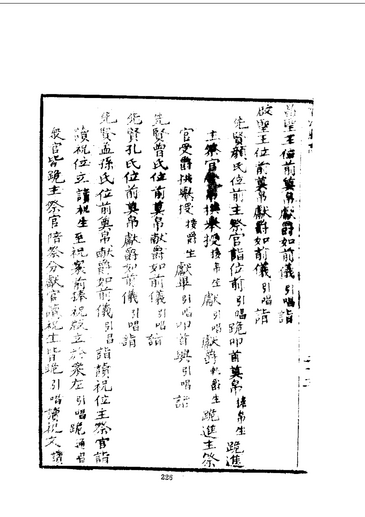 昌聖王位前奠帛獻爵如前儀引唱詣
啟聖王位前奠帛獻爵如前儀引唱詣
先賢顏氏位前主祭官詣位前引唱跪叩首奠帛捧帛生跪進
主祭官奠帛舉授接帛生獻引唱獻爵執爵生跪進主祭
官受爵拱舉授接爵生獻畢引唱叩首興引唱詣
先賢曾氏位前奠帛獻爵如前儀引唱詣
先賢孔氏位前奠帛獻爵如前儀引唱詣
先賢孟孫氏位前奠帛獻爵如前儀引唱詣讀祝位主祭官詣
讀祝位立讀祝生至祝案前捧祝版立於案左引唱跪通唱
眾官皆跪主祭官陪祭分獻官讀祝生皆跪引唱讀祝文讀
226